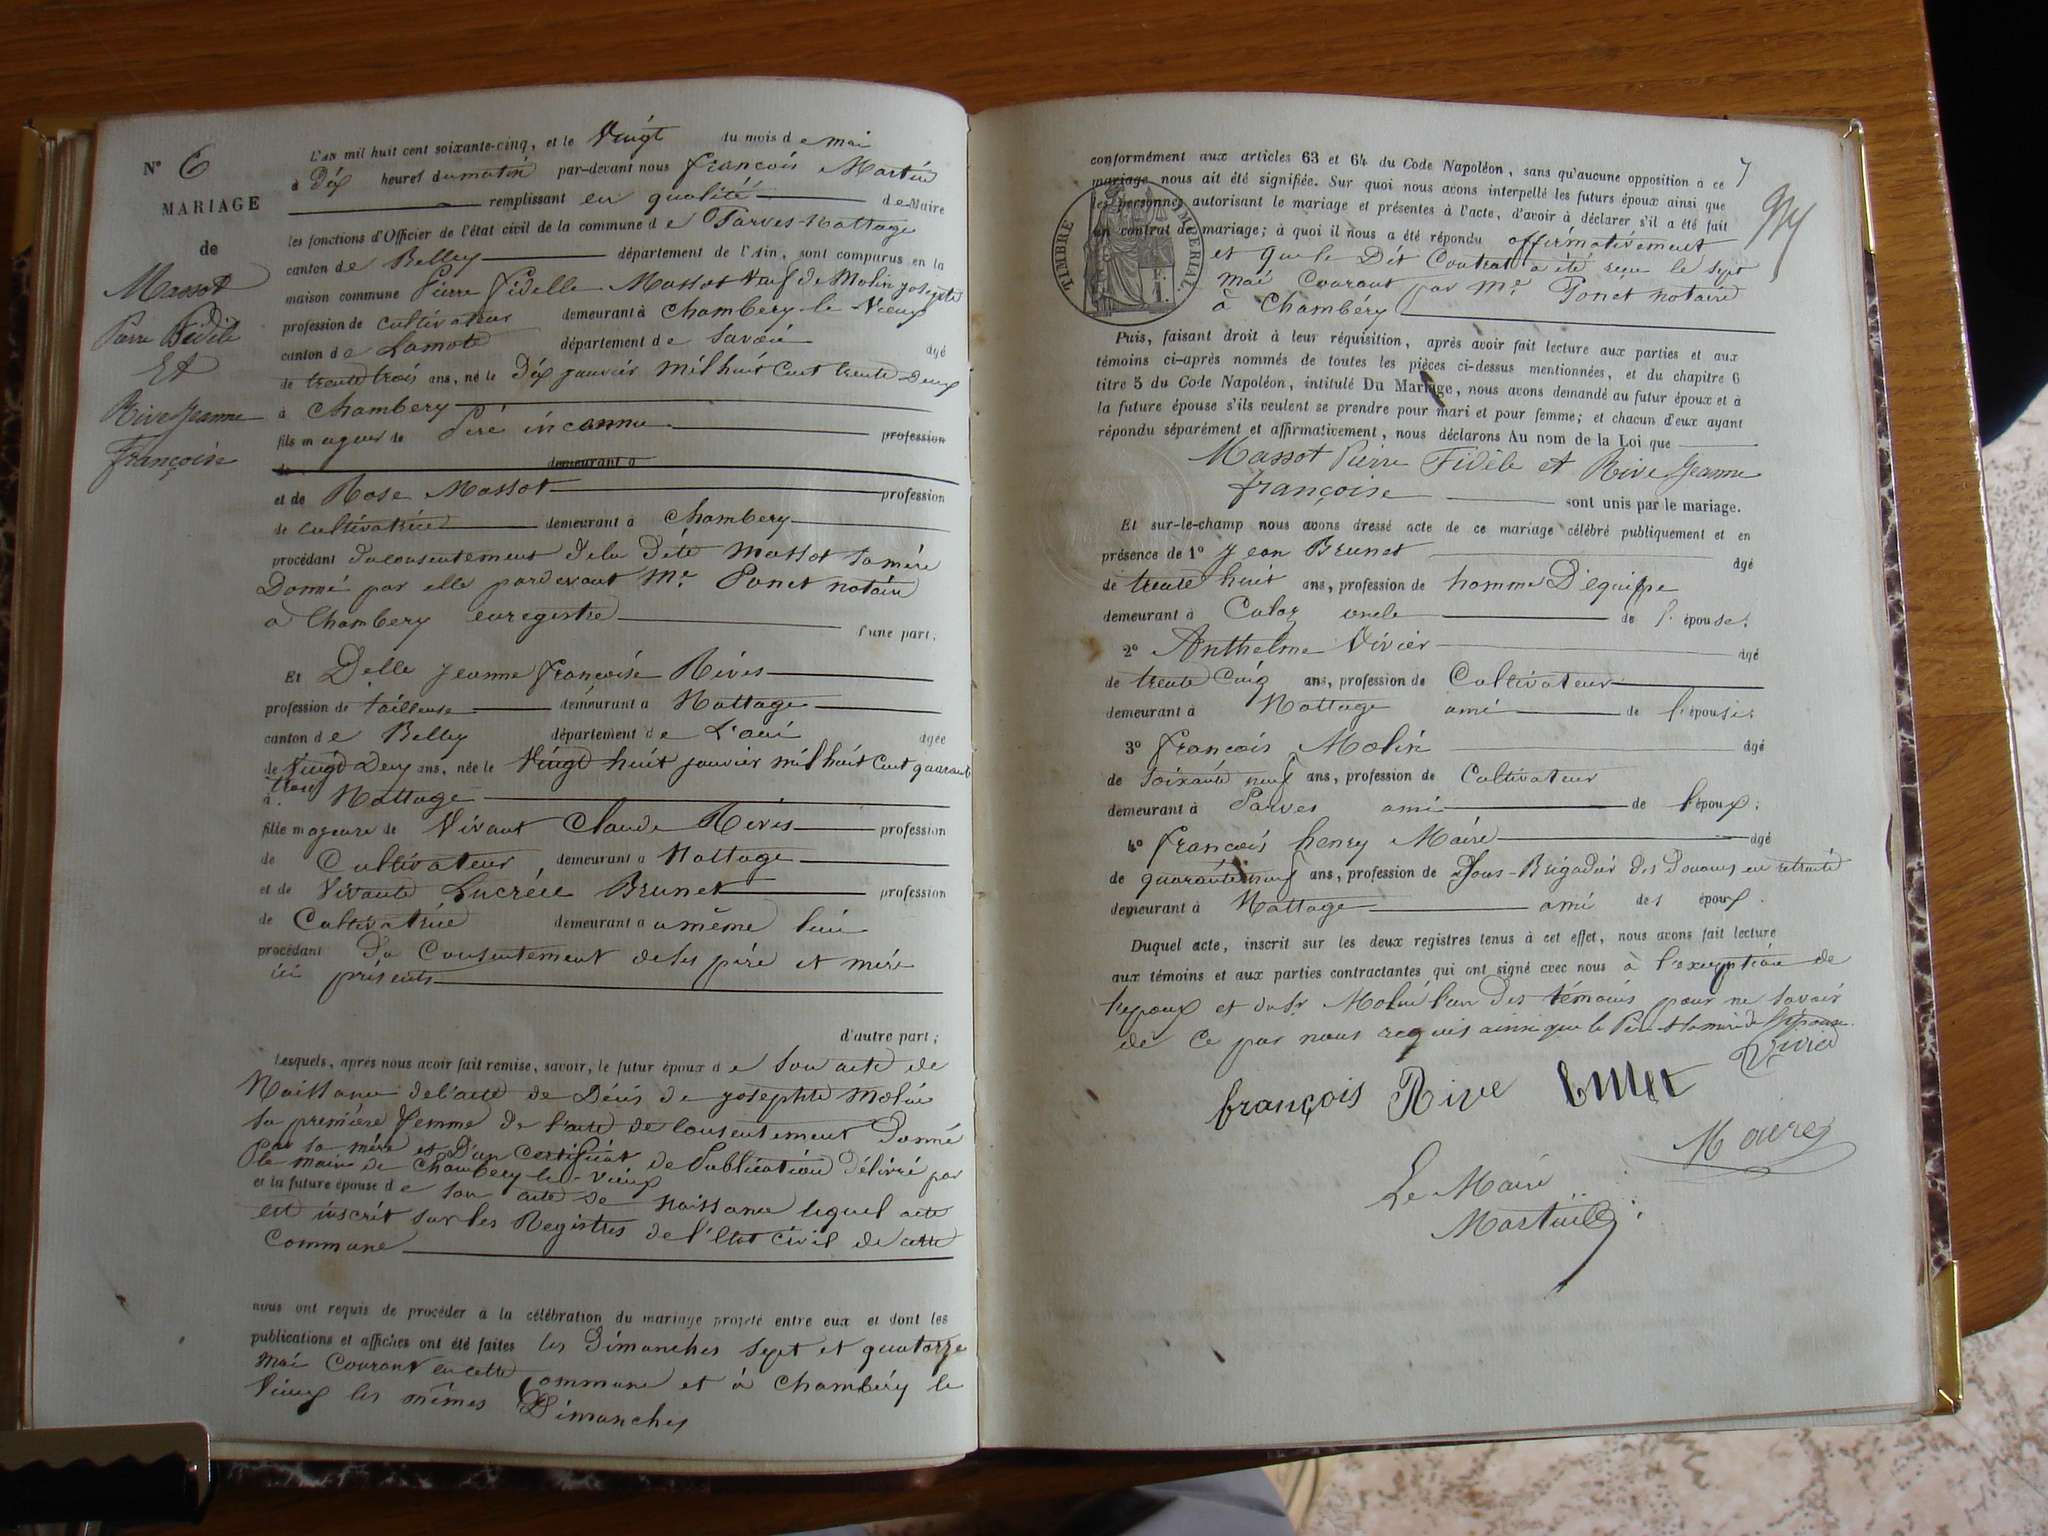 N° 6
MARIAGE
de
Massot
Pierre Fidèle
Et
Rive Jeanne
françoise
L'AN mil huit cent soixante-cinq, et le Vingt du mois de mai
à Dix heures du matin par-devant nous françois Martin
remplissant en qualité de Maire
les fonctions d'Officier de l'état civil de la commune de Parves-Nattage
canton de Belley département de l'Ain, sont comparus en la
maison commune Pierre Fidelle Massot Veuf de Molin josephte
profession de cultivateur demeurant à Chambery le Vieux
canton de Lamote département de Savoie âgé
de trente trois ans, né le Dix janvier mil huit Cent trente Deux
à Chambery
fils majeur de Père inconnu profession
de demeurant à
et de Rose Massot profession
de cultivatrice demeurant à Chambery
procédant du consentement de la dite Massot sa mère
Donné par elle pardevant Me Ponet notaire
a Chambery enregistré
d'une part,
Et Delle Jeanne françoise Rives
profession de tailleuse demeurant à Nattage
canton de Belley département de L'ain âgée
de Vingt Deux ans, née le Vingt huit janvier mil huit Cent quarante
trois
à Nattage
fille majeure de Vivant Claude Rives profession
de Cultivateur demeurant à Nattage
et de Vivante Lucrèce Brunet profession
de Cultivatrice demeurant à au même lieu
procédant Du Consentement de ses père et mère
ici présents
d'autre part;
Lesquels, après nous avoir fait remise, savoir, le futur époux de son acte de
Naissance de l'acte de Décès de josephte Molin
sa première femme de l'acte de consentement Donné
par sa mère et D'un Certificat de Publication Délivré par
le maire de Chambery le Vieux
et la future épouse de son acte de Naissance lequel acte
est inscrit sur les Registres de l'Etat Civil de cette
Commune
nous ont requis de procéder à la célébration du mariage projeté entre eux et dont les
publications et affiches ont été faites les Dimanches sept et quatorze
mai Courant en cette Commune et à Chambéry le
Vieux les mêmes Dimanches
7
conformément aux articles 63 et 64 du Code Napoléon, sans qu'aucune opposition à ce
mariage nous ait été signifiée. Sur quoi nous avons interpellé les futurs époux ainsi que
les personnes autorisant le mariage et présentes à l'acte, d'avoir à déclarer s'il a été fait
un contrat de mariage; à quoi il nous a été répondu affirmativement
et que le Dit Contrat a été reçu le sept
mai Courant par Me Ponet notaire
à Chambéry
TIMBRE IMPERIAL.
Puis, faisant droit à leur réquisition, après avoir fait lecture aux parties et aux
témoins ci-après nommés de toutes les pièces ci-dessus mentionnées, et du chapitre 6
titre 5 du Code Napoléon, intitulé Du Mariage, nous avons demandé au futur époux et à
la future épouse s'ils veulent se prendre pour mari et pour femme; et chacun d'eux ayant
répondu séparément et affirmativement, nous déclarons Au nom de la Loi que
Massot Pierre Fidèle et Rive Jeanne
françoise sont unis par le mariage.
Et sur-le-champ nous avons dressé acte de ce mariage célébré publiquement et en
présence de 1° Jean Brunet âgé
de trente huit ans, profession de homme D'équipe
demeurant à Culoz oncle de l'épouse;
2° Anthelme Vivier âgé
de trente Cinq ans, profession de Cultivateur
demeurant à Nattage ami de l'épouse;
3° françois Molin âgé
de soixante neuf ans, profession de Cultivateur
demeurant à Parves ami de l'époux;
4° françois henry Maire âgé
de quarante neuf ans, profession de Sous-Brigadier des Douanes en retraite
demeurant à Nattage ami de l'époux.
Duquel acte, inscrit sur les deux registres tenus à cet effet, nous avons fait lecture
aux témoins et aux parties contractantes qui ont signé avec nous à l'exception de
l'époux et du Sr Molin l'un Des témoins pour ne savoir
de ce par nous requis ainsi que le Père et la mère de l'épouse
Vivier
françois Rive brunet
Maire
Le Maire
Martin